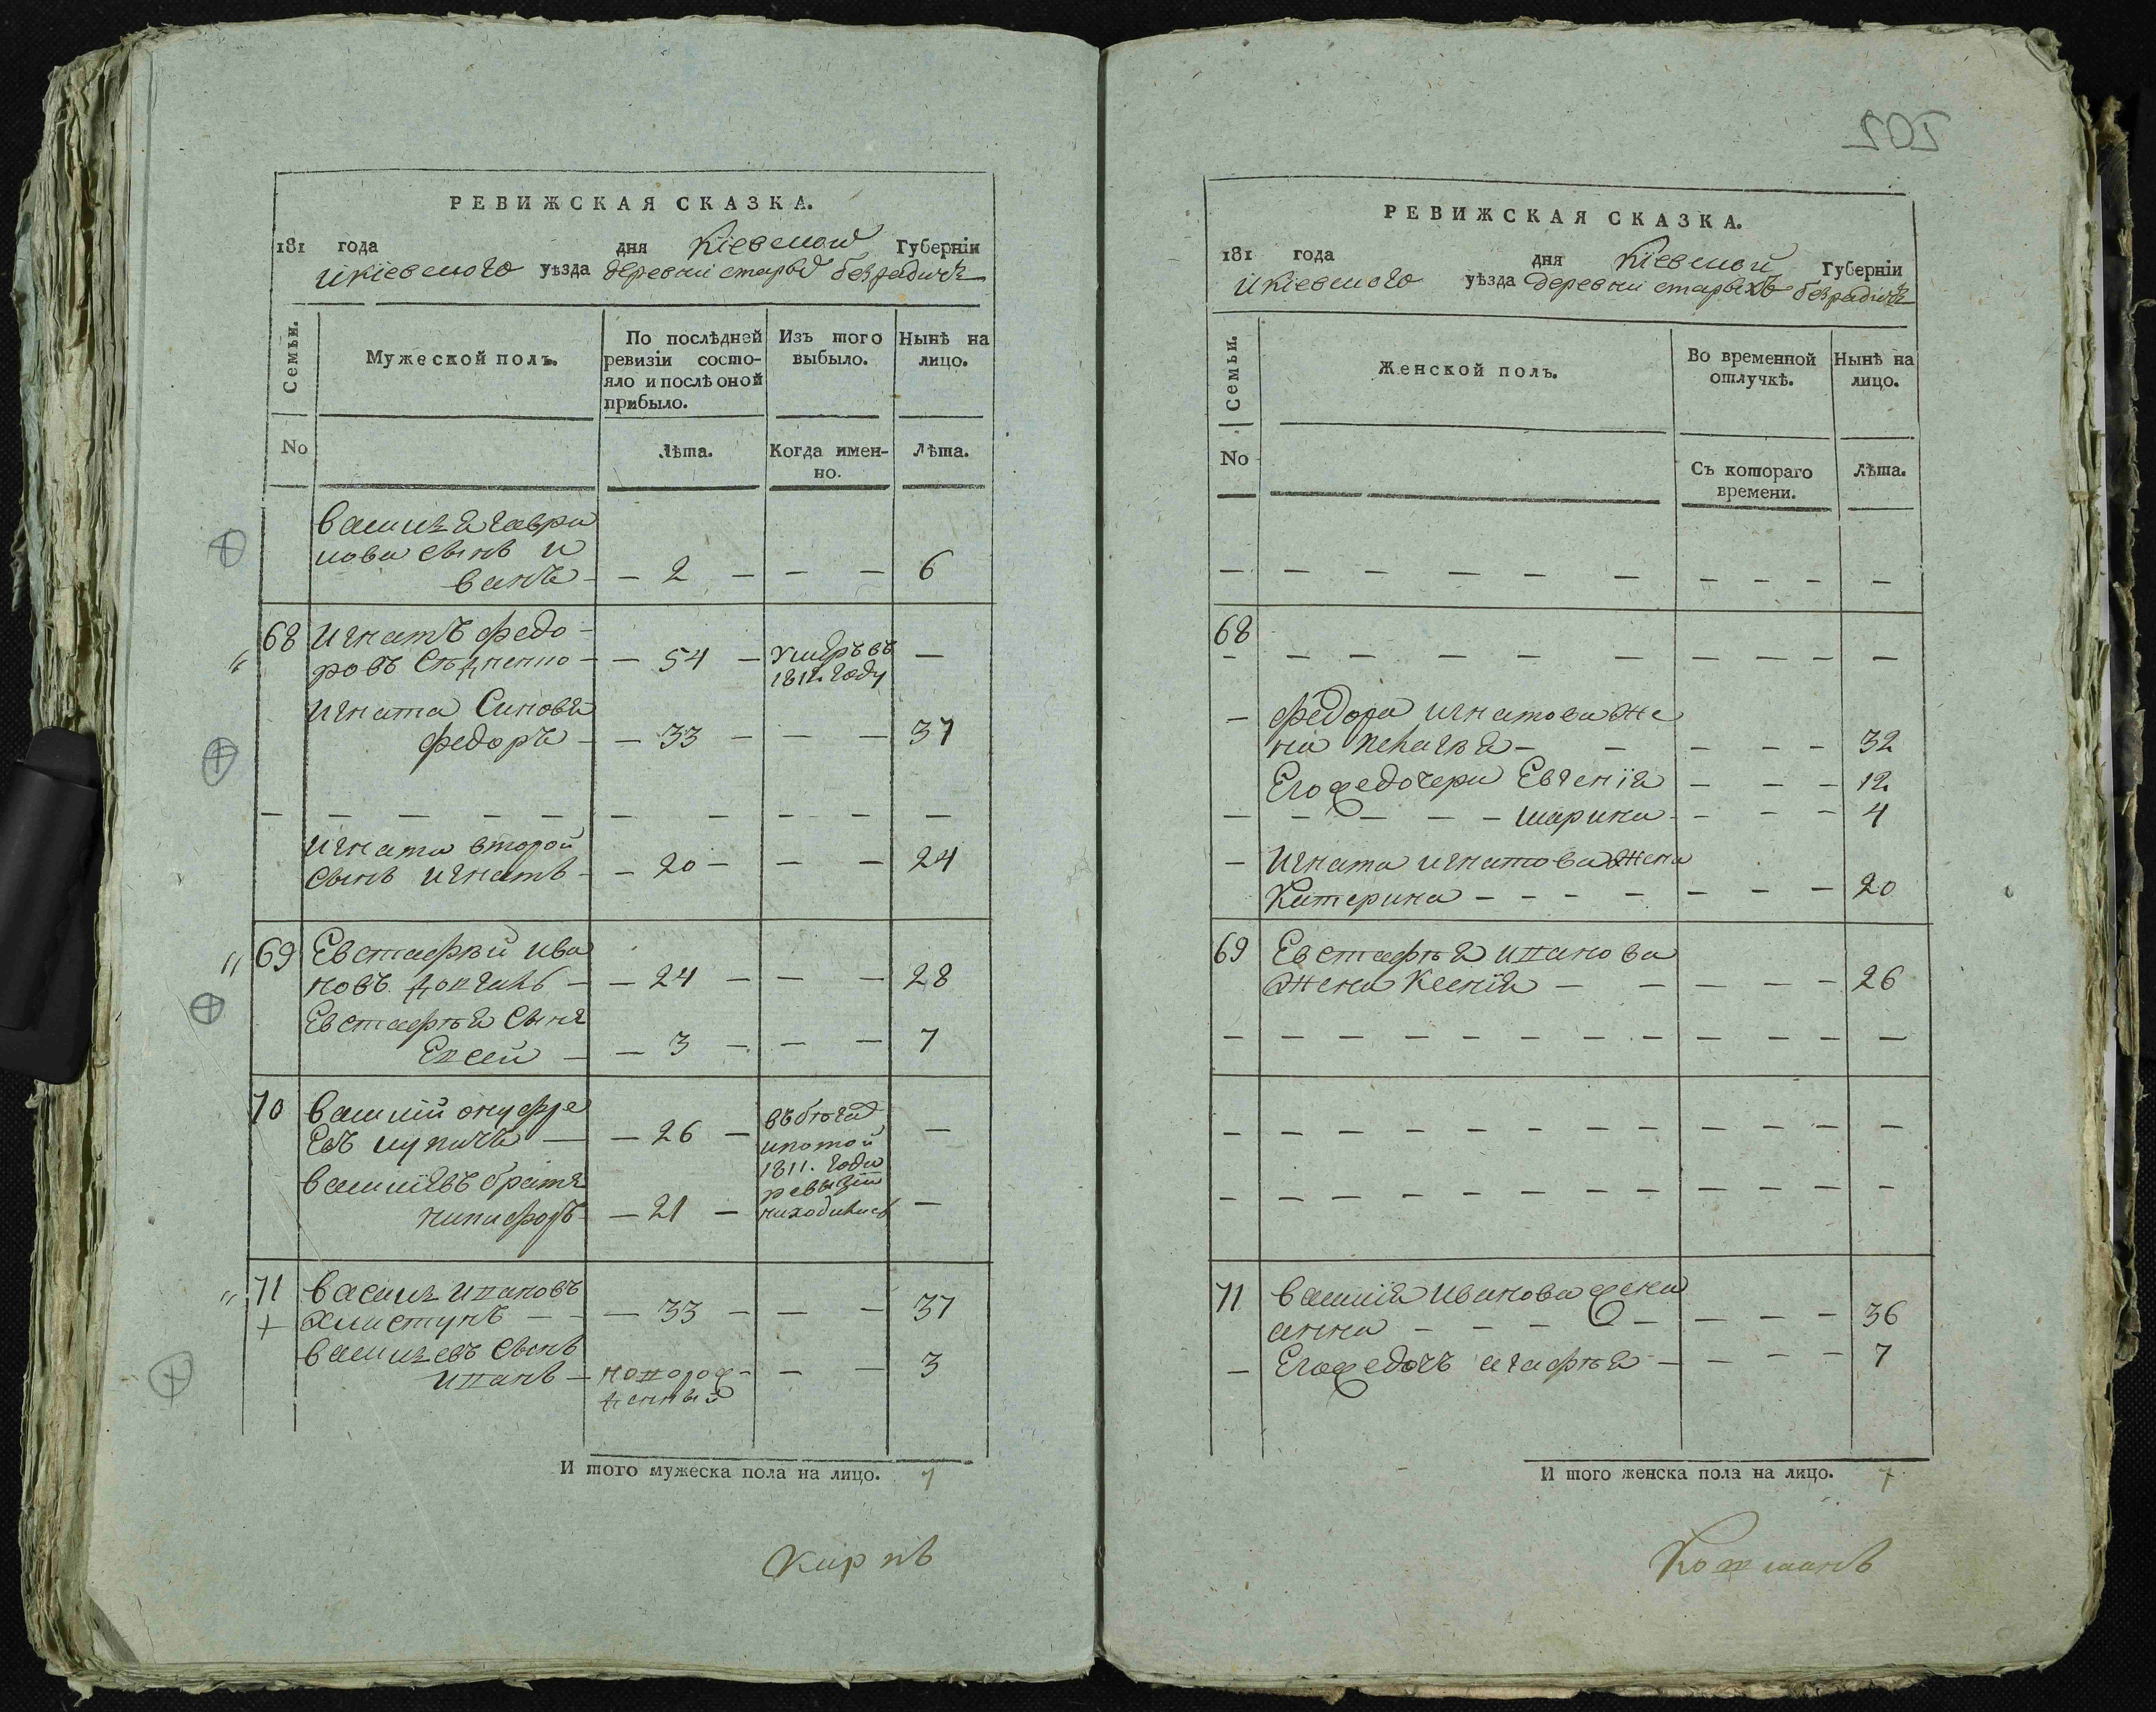 РЕВИЖСКАЯ СКАЗКА.
181 года дня Кіевской Губерніи
Икіевского уѣзда деревни старых безрадичъ
Семьи.
Мужеской полъ.
По послѣдней ревизіи состо-
яло и послѣ оной
прибыло.
Изъ того
выбыло.
Нынѣ на
лицо.
No
Лѣта.
Когда имен-
но.
Лѣта.
василя гаври
лова сынъ и
ванъ — 2 — — — 6
68 Игнатъ федо-
ровъ — 54 — умеръ въ —
1812. году
Игната Синовя
федоръ — 33 — — — 37
Игната второй
сынъ игнатъ — 20 — — — 24
69 Евстафій ива
новъ — 24 — — — 28
Евстафія сынъ
Евсей — 3 — — — 7
70 василій онуфре
евъ — 26 — въ бѣгах —
и по той
1811. года
ревизіи
находились
василіевъ братъ
никифоръ — 21 — —
71 василь ивановъ
хлистунъ — 33 — — — 37
васильевъ сынъ
иванъ — новорож-
денный — — 3
И того мужеска пола на лицо. 7
202
РЕВИЖСКАЯ СКАЗКА.
181 года дня Кіевской Губерніи
Икіевского уѣзда деревни старыхъ безрадичъ
Семьи.
Женской полъ.
Во временной
отлучкѣ.
Нынѣ на
лицо.
No
Съ котораго
времени.
Лѣта.
68
федора игнатова же
на Пелагѣя — 32
Егожедочери Евгенія — 12
марина — 4
Игната игнатова жена
Катерина — 20
69 Евстафѣя иванова
жена Ксенія — 26
71 василія иванова жена
анна — 36
Егожедочъ агафѣя — 7
И того женска пола на лицо. 7